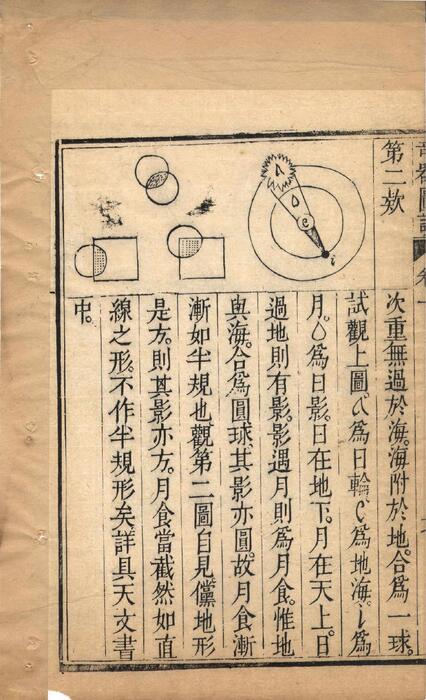 奇器圖說 卷一
第二欸
次重無過於海。海附於地。合爲一球。
試觀上圖。a爲日輪。c爲地海。i爲
月。o爲日影。日在地下。月在天上。日
過地則有影。影遇月則爲月食。惟地
與海。合爲圓球。其影亦圓。故月食漸
漸如半規也。觀第二圖自見。儻地形
是方。則其影亦方。月食當截然如直
線之形。不作半規形矣。詳具天文書
中。